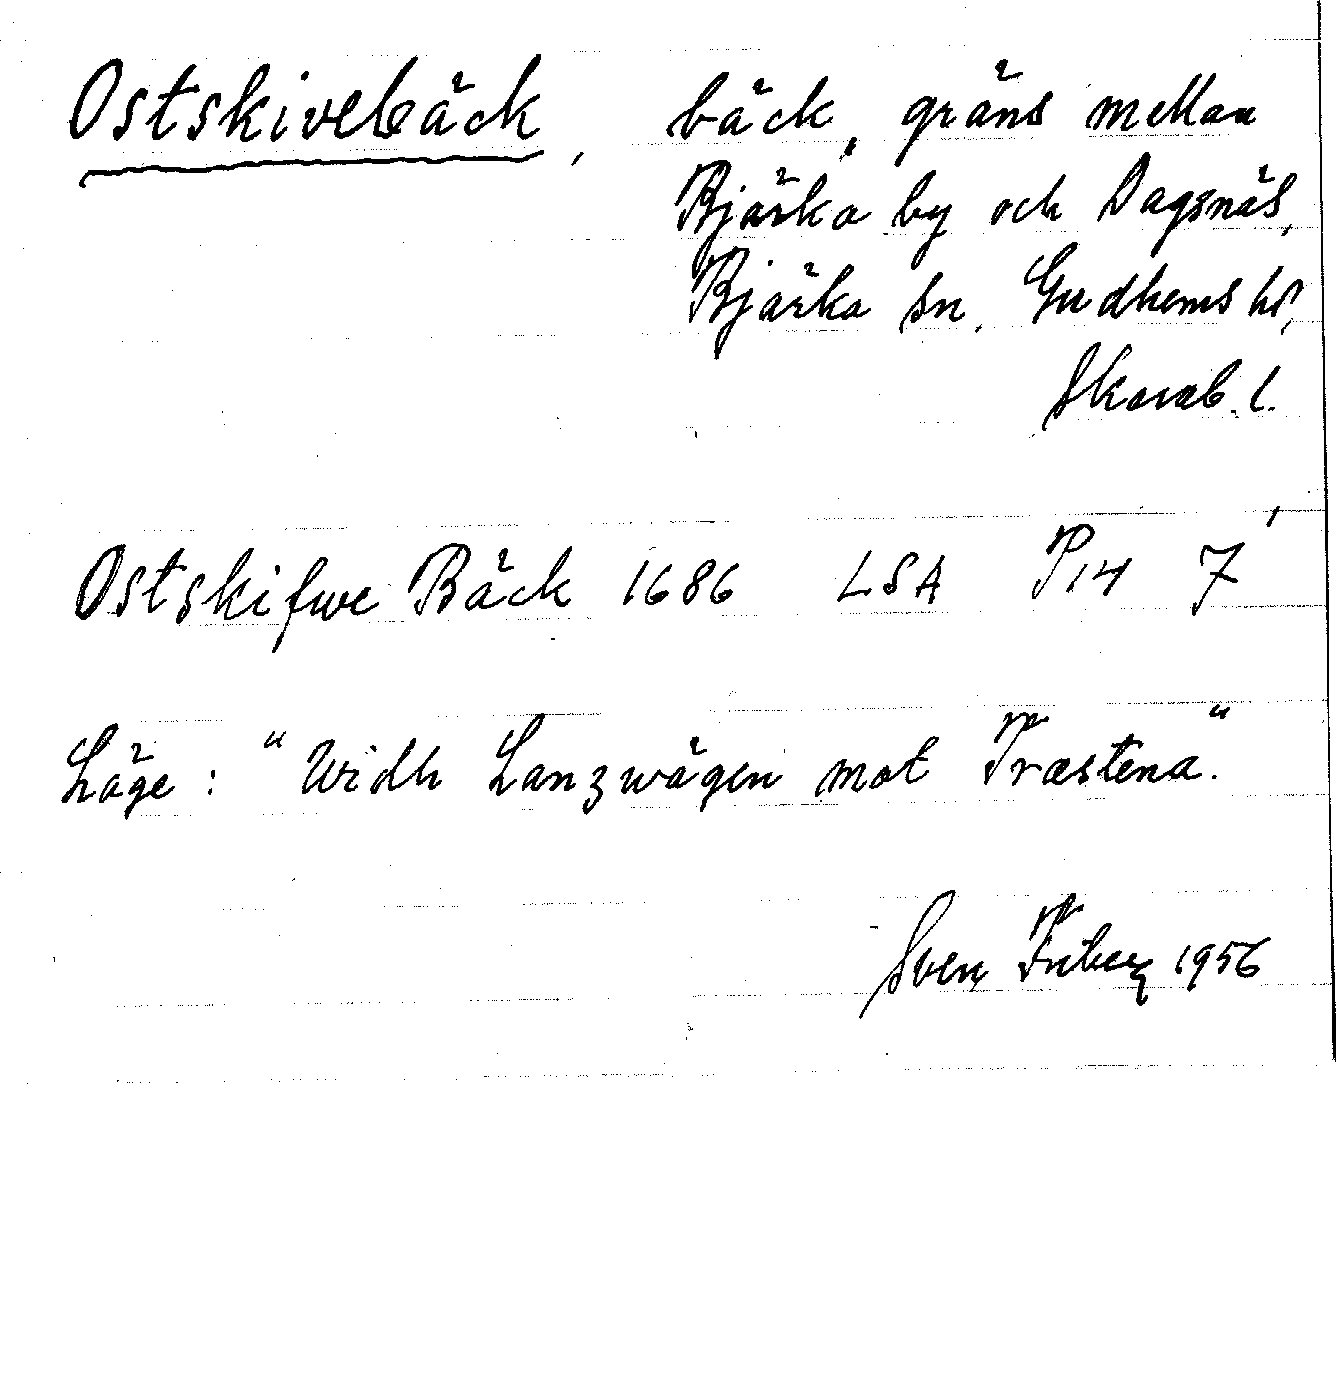 Ostskivebäck, bäck, gräns mellan
Bjärka by och Dagsnäs,
Bjärka sn, Gudhems hd,
Skarab. l.
Ostskifwe Bäck 1686 LSA P14 7
Läge: "Widh Lanzwägen mot Træstena."
Sven Friberg 1956